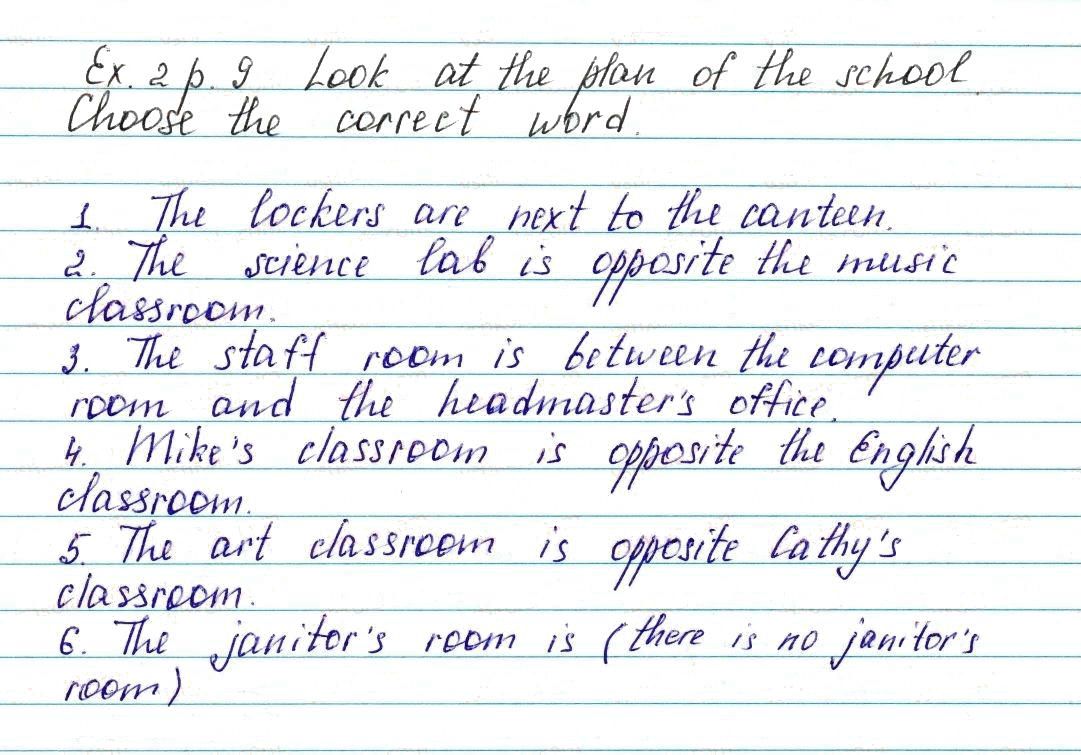 Ex. 2 p. 9 Look at the plan of the school.
Choose the correct word.
1. The lockers are next to the canteen.
2. The science lab is opposite the music
classroom.
3. The staff room is between the computer
room and the headmaster's office.
4. Mike's classroom is opposite the English
classroom.
5. The art classroom is opposite Cathy's
classroom.
6. The janitor's room is (there is no janitor's
room)